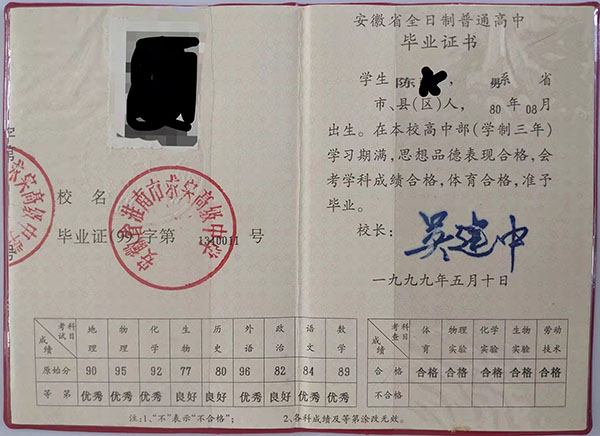 校名
毕业证(99)字第1310011号
安徽省淮南市
高级中学
考试科目 地理 物理 化学 生物 历史 外语 政治 语文 数学
成绩
原始分 90 95 92 77 80 96 82 84 89
等第 优秀 优秀 优秀 良好 良好 优秀 良好 优秀 优秀
注:1、“不”表示“不合格”; 2、各科成绩及等第涂改无效。
安徽省全日制普通高中
毕业证书
学生 陈 , 男 系 省
市、县(区)人, 80年08月
出生。在本校高中部(学制三年)
学习期满,思想品德表现合格,会
考学科成绩合格,体育合格,准予
毕业。
校长: 吴建中
一九九九年五月十日
考查科目 体育 物理实验 化学实验 生物实验 劳动技术
成绩
合格 合格 合格 合格 合格 合格
不合格